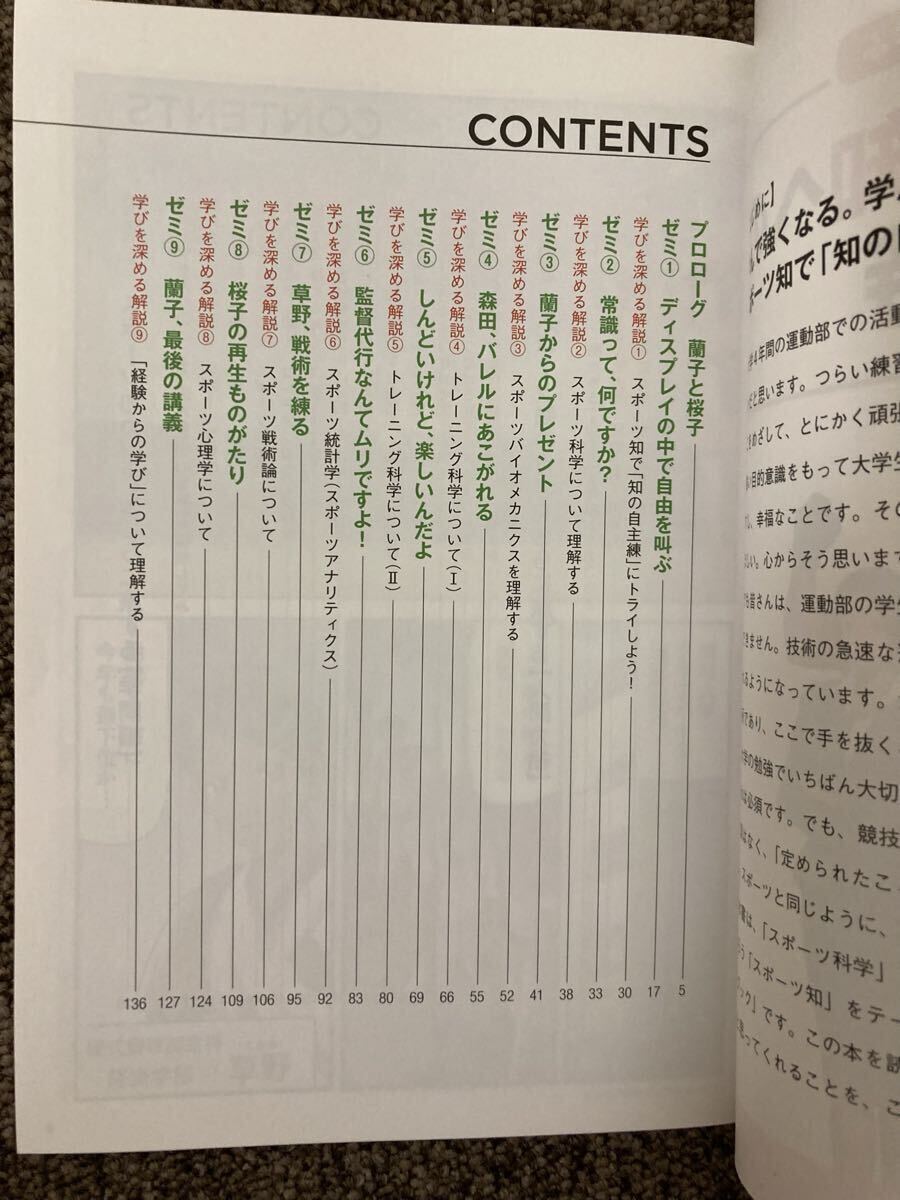 CONTENTS
プロローグ 蘭子と桜子 5
ゼミ① ディスプレイの中で自由を叫ぶ 17
学びを深める解説① スポーツ知で「知の自主練」にトライしよう! 30
ゼミ② 常識って、何ですか? 33
学びを深める解説② スポーツ科学について理解する 38
ゼミ③ 蘭子からのプレゼント 41
学びを深める解説③ スポーツバイオメカニクスを理解する 52
ゼミ④ 森田、バレルにあこがれる 55
学びを深める解説④ トレーニング科学について(Ⅰ) 66
ゼミ⑤ しんどいけれど、楽しいんだよ 69
学びを深める解説⑤ トレーニング科学について(Ⅱ) 80
ゼミ⑥ 監督代行なんてムリですよ! 83
学びを深める解説⑥ スポーツ統計学(スポーツアナリティクス) 92
ゼミ⑦ 草野、戦術を練る 95
学びを深める解説⑦ スポーツ戦術論について 106
ゼミ⑧ 桜子の再生ものがたり 109
学びを深める解説⑧ スポーツ心理学について 124
ゼミ⑨ 蘭子、最後の講義 127
学びを深める解説⑨ 「経験からの学び」について理解する 136
めに]
で強くなる。学
ーツ知で「知の
4年間の運動部での活動
と思います。つらい練習
めざして、とにかく頑張
目的意識をもって大学生
、幸福なことです。その
い。心からそう思いま
皆さんは、運動部の学生
きません。技術の急速な
るようになっています。
であり、ここで手を抜く
学の勉強でいちばん大切
は必須です。でも、競技
はなく、「定められたこ
スポーツと同じように、
は、「スポーツ科学」
「スポーツ知」をテー
ック」です。この本を読
思ってくれることを、こ